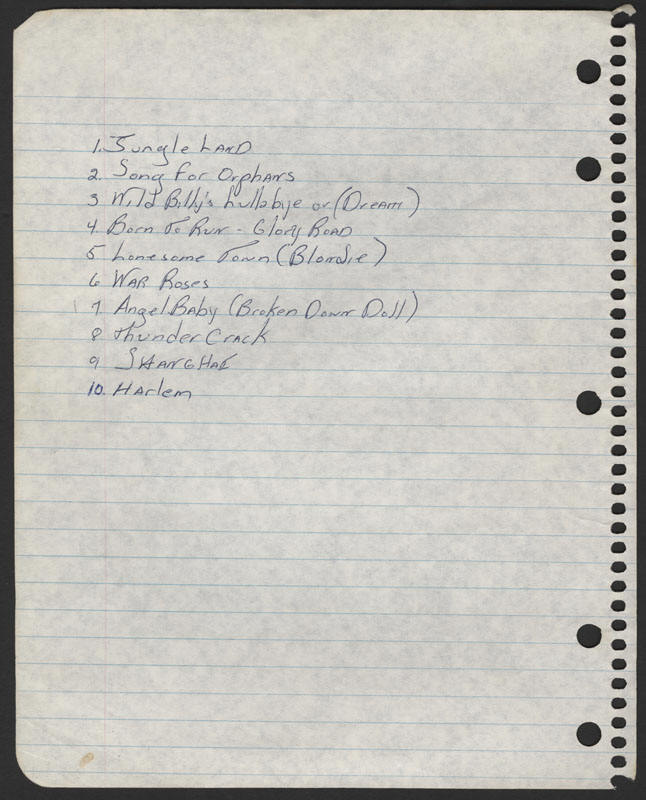 1. Jungle LAND
2. Song For Orphans
3 Wild Billy's Lullabye or (Dream)
4 Born To Run - Glory Road
5 Lonesome Town (Blondie)
6 WAR Roses
7 Angel Baby (Broken Down Doll)
8 Thunder Crack
9 SHANGHAI
10. Harlem